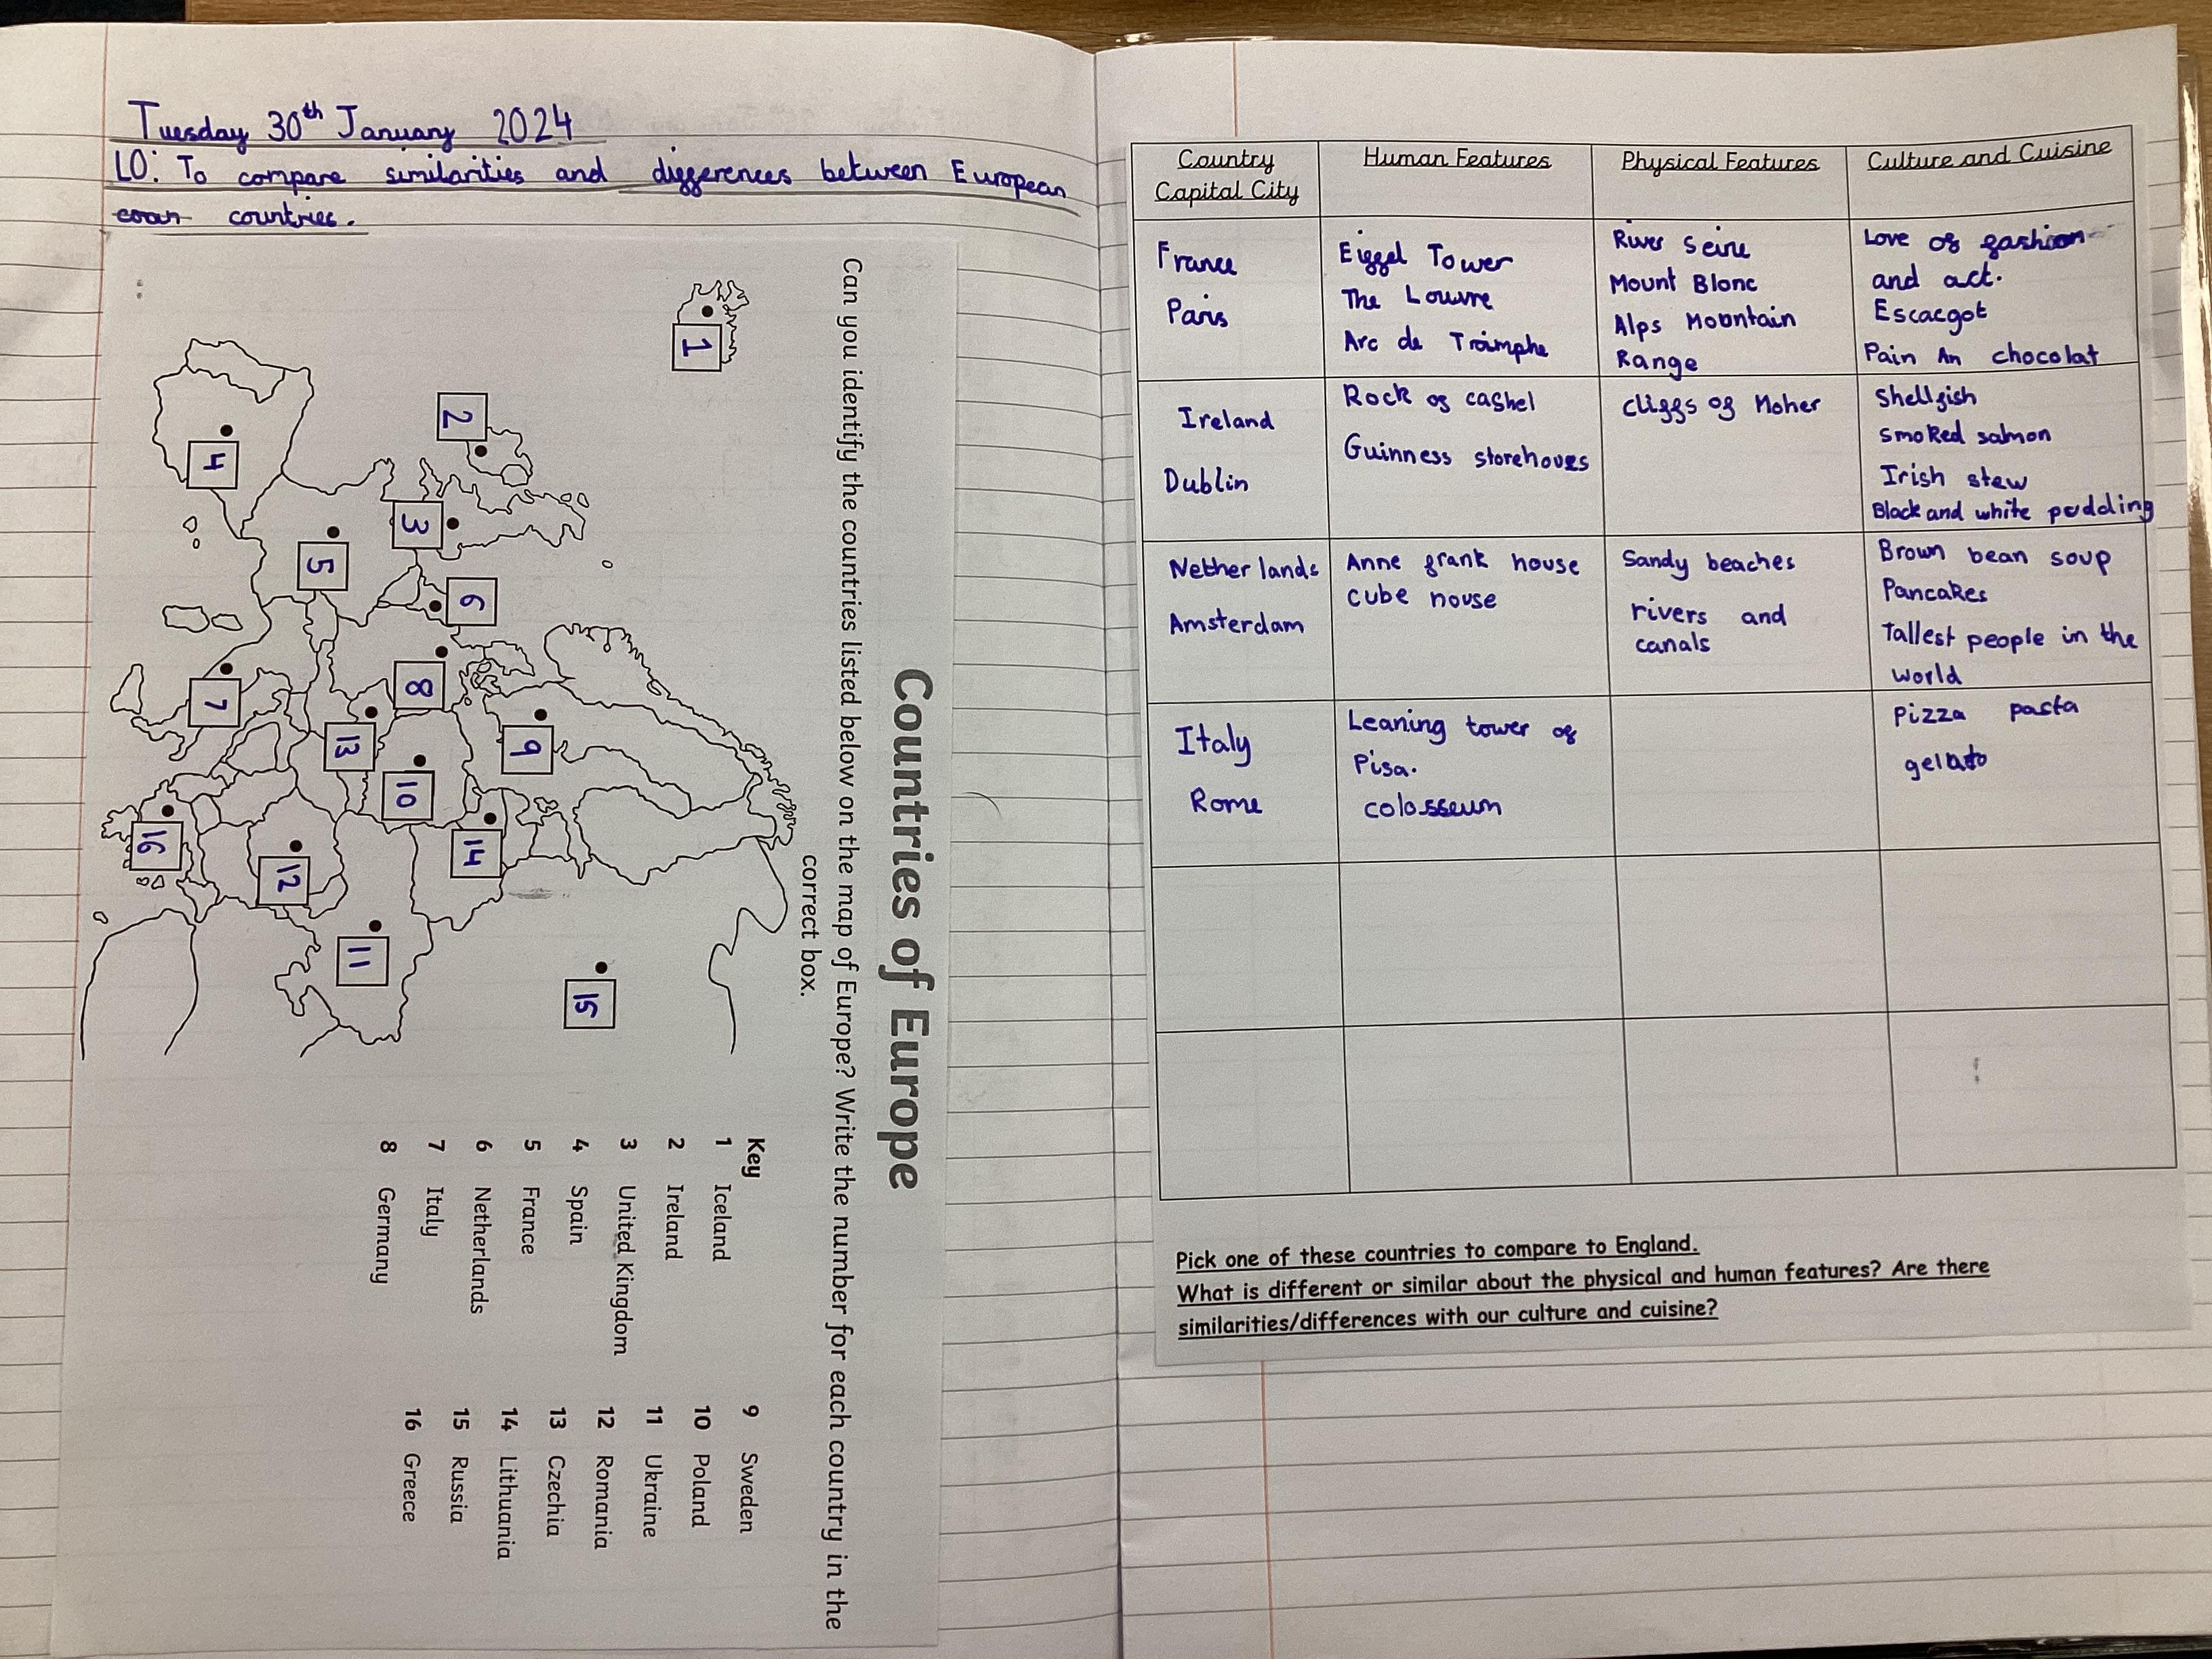 Tuesday 30th January 2024
LO: To compare similarities and differences between European
coun countries.
Countries of Europe
Can you identify the countries listed below on the map of Europe? Write the number for each country in the
correct box.
1
2
3
4
5
6
7
8
9
10
11
12
13
14
15
16
Key
1 Iceland
2 Ireland
3 United Kingdom
4 Spain
5 France
6 Netherlands
7 Italy
8 Germany
9 Sweden
10 Poland
11 Ukraine
12 Romania
13 Czechia
14 Lithuania
15 Russia
16 Greece
Country
Capital City
Human Features
Physical Features
Culture and Cuisine
France
Paris
Eiffel Tower
The Louvre
Arc de Triomphe
River Seine
Mount Blonc
Alps Mountain
Range
Love of fashion
and art.
Escargot
Pain An chocolat
Ireland
Dublin
Rock of cashel
Guinness storehoues
Cliffs of Moher
Shellfish
Smoked salmon
Irish stew
Black and white pudding
Netherlands
Amsterdam
Anne frank house
cube house
Sandy beaches
rivers and
canals
Brown bean soup
Pancakes
Tallest people in the
world
Italy
Rome
Leaning tower of
Pisa.
colosseum
Pizza pasta
gelato
Pick one of these countries to compare to England.
What is different or similar about the physical and human features? Are there
similarities/differences with our culture and cuisine?